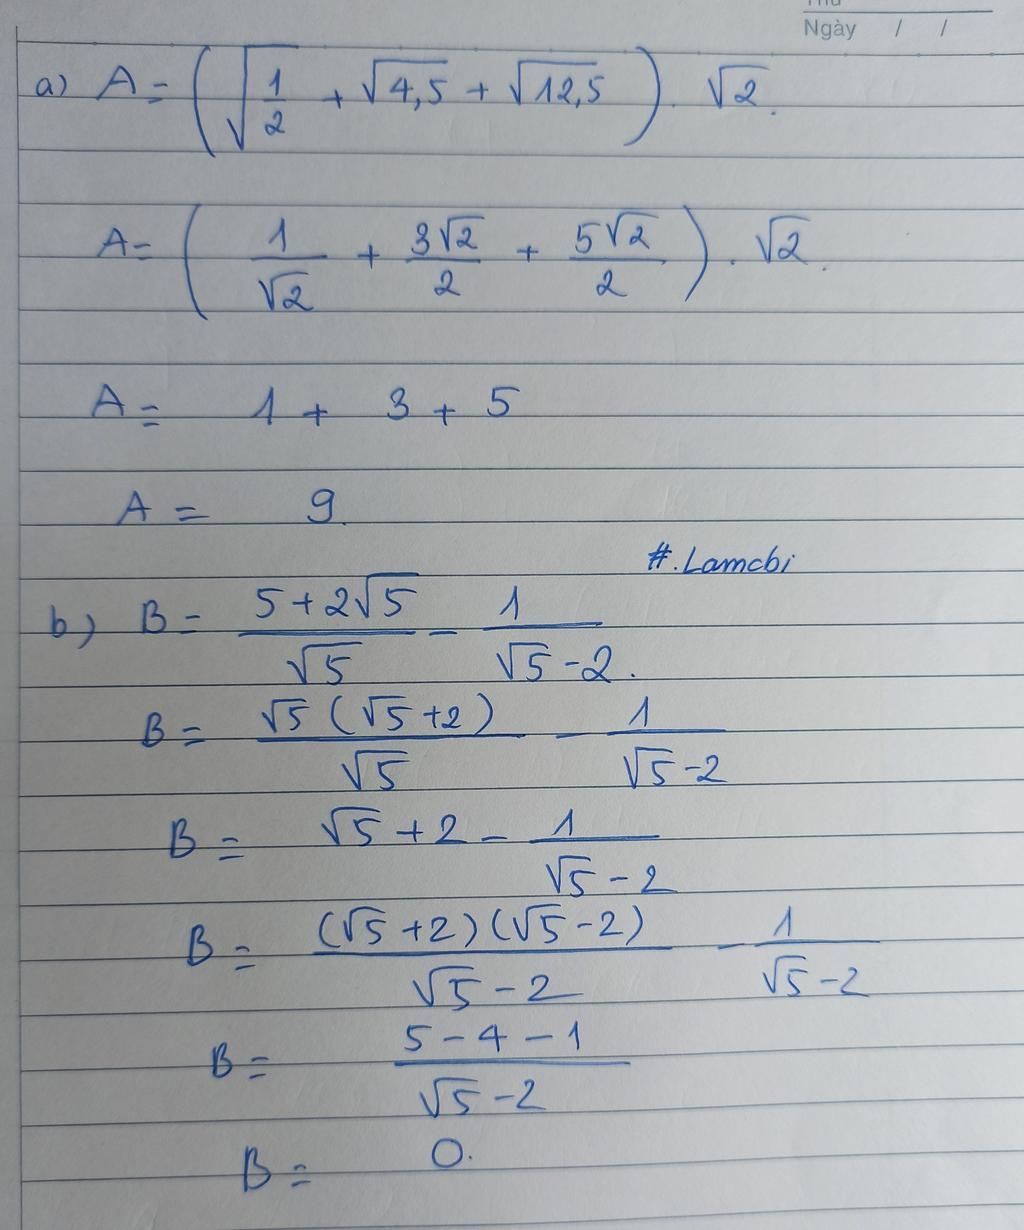 Thứ
Ngày / /
a) A = (√(1/2) + √4,5 + √12,5) . √2.
A = (1/√2 + 3√2/2 + 5√2/2) . √2.
A = 1 + 3 + 5
A = 9.
#.Lamcbi
b) B = (5+2√5)/√5 - 1/(√5-2).
B = √5(√5+2)/√5 - 1/(√5-2)
B = √5+2 - 1/(√5-2)
B = (√5+2)(√5-2)/(√5-2) - 1/(√5-2)
B = (5-4-1)/(√5-2)
B = 0.